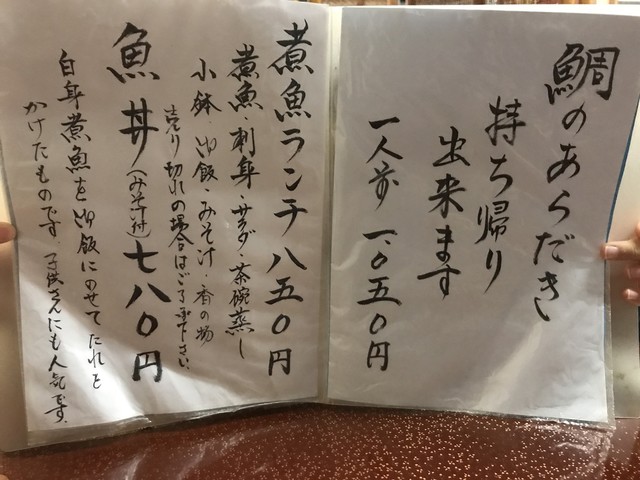 鯛のあらだき
持ち帰り
出来ます
一人前 一、〇五〇円
煮魚ランチ 八五〇円
煮魚・刺身・サラダ・茶碗蒸し
小鉢・御飯・みそ汁・香の物
売り切れの場合はご了承下さい。
魚丼(みそ汁付)七八〇円
白身煮魚を御飯にのせてたれを
かけたものです。子供さんにも人気です。